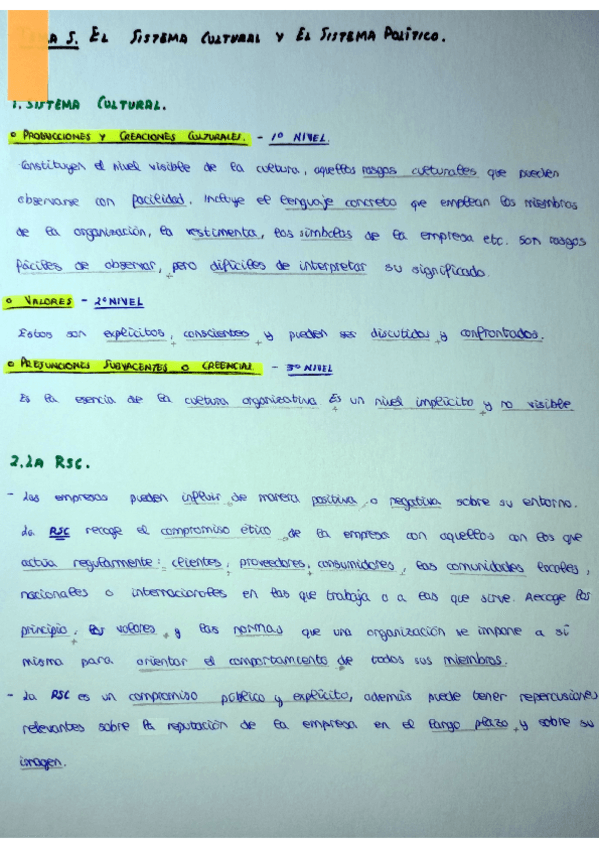 TEMA 5. EL SISTEMA CULTURAL Y EL SISTEMA POLÍTICO.
1. SISTEMA CULTURAL.
PRODUCCIONES Y CREACIONES CULTURALES. - 1º NIVEL.
Constituyen el nivel visible de la cultura, aquellos rasgos culturales que pueden
observarse con facilidad. Incluye el lenguaje concreto que emplean los miembros
de la organización, la vestimenta, los símbolos de la empresa etc. son rasgos
fáciles de observar, pero difíciles de interpretar su significado.
VALORES - 2º NIVEL
Estos son explícitos, conscientes y pueden ser discutidos y confrontados.
PRESUNCIONES SUBYACENTES O CREENCIAL. - 3º NIVEL
Es la esencia de la cultura organizativa Es un nivel implícito y no visible
2. LA RSC.
- Las empresas pueden influir de manera positiva o negativa sobre su entorno.
La RSC recoge el compromiso ético de la empresa con aquellos con los que
actúa regularmente: clientes, proveedores, consumidores, las comunidades locales,
nacionales o internacionales en las que trabaja o a las que sirve. Recoge los
principio, los valores y las normas que una organización se impone a sí
misma para orientar el comportamiento de todos sus miembros.
- La RSC es un compromiso público y explícito, además puede tener repercusiones
relevantes sobre la reputación de la empresa en el largo plazo y sobre su
imagen.